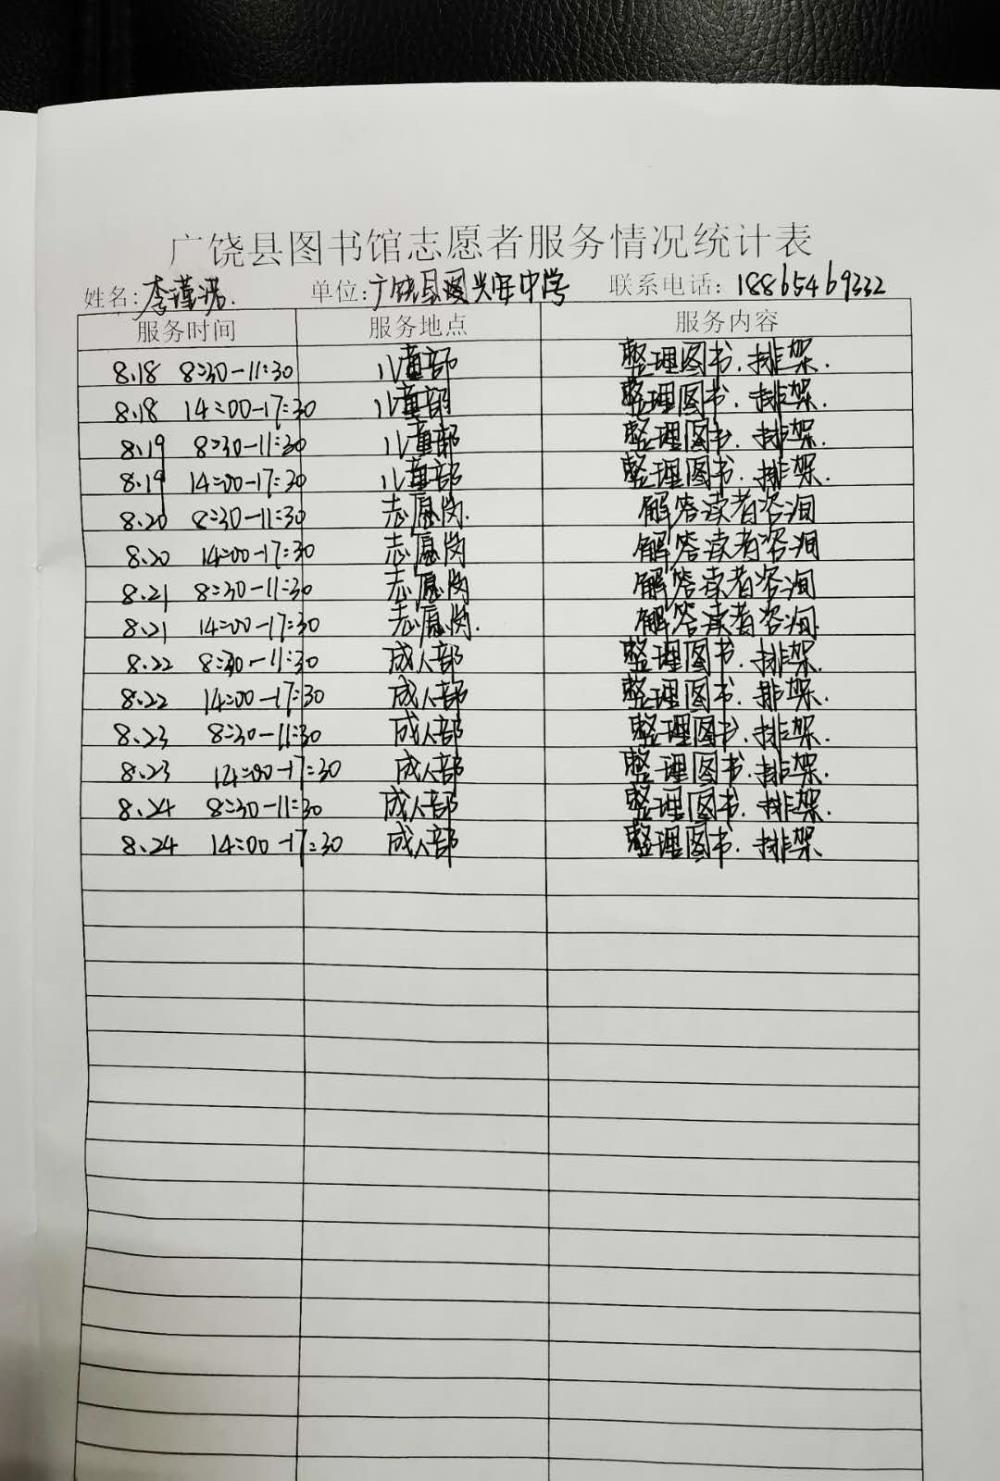 广饶县图书馆志愿者服务情况统计表
姓名:李 单位:广饶县 兴安中学 联系电话:18865469332
服务时间 服务地点 服务内容
8.18 8:30-11:30 儿童部 整理图书.排架.
8.18 14:00-17:30 儿童部 整理图书.排架.
8.19 8:30-11:30 儿童部 整理图书.排架.
8.19 14:00-17:30 儿童部 整理图书.排架.
8.20 8:30-11:30 志愿岗. 解答读者咨询
8.20 14:00-17:30 志愿岗 解答读者咨询
8.21 8:30-11:30 志愿岗 解答读者咨询
8.21 14:00-17:30 志愿岗. 解答读者咨询
8.22 8:30-11:30 成人部 整理图书.排架.
8.22 14:00-17:30 成人部 整理图书.排架.
8.23 8:30-11:30 成人部 整理图书.排架.
8.23 14:00-17:30 成人部 整理图书.排架.
8.24 8:30-11:30 成人部 整理图书.排架.
8.24 14:00-17:30 成人部 整理图书.排架.